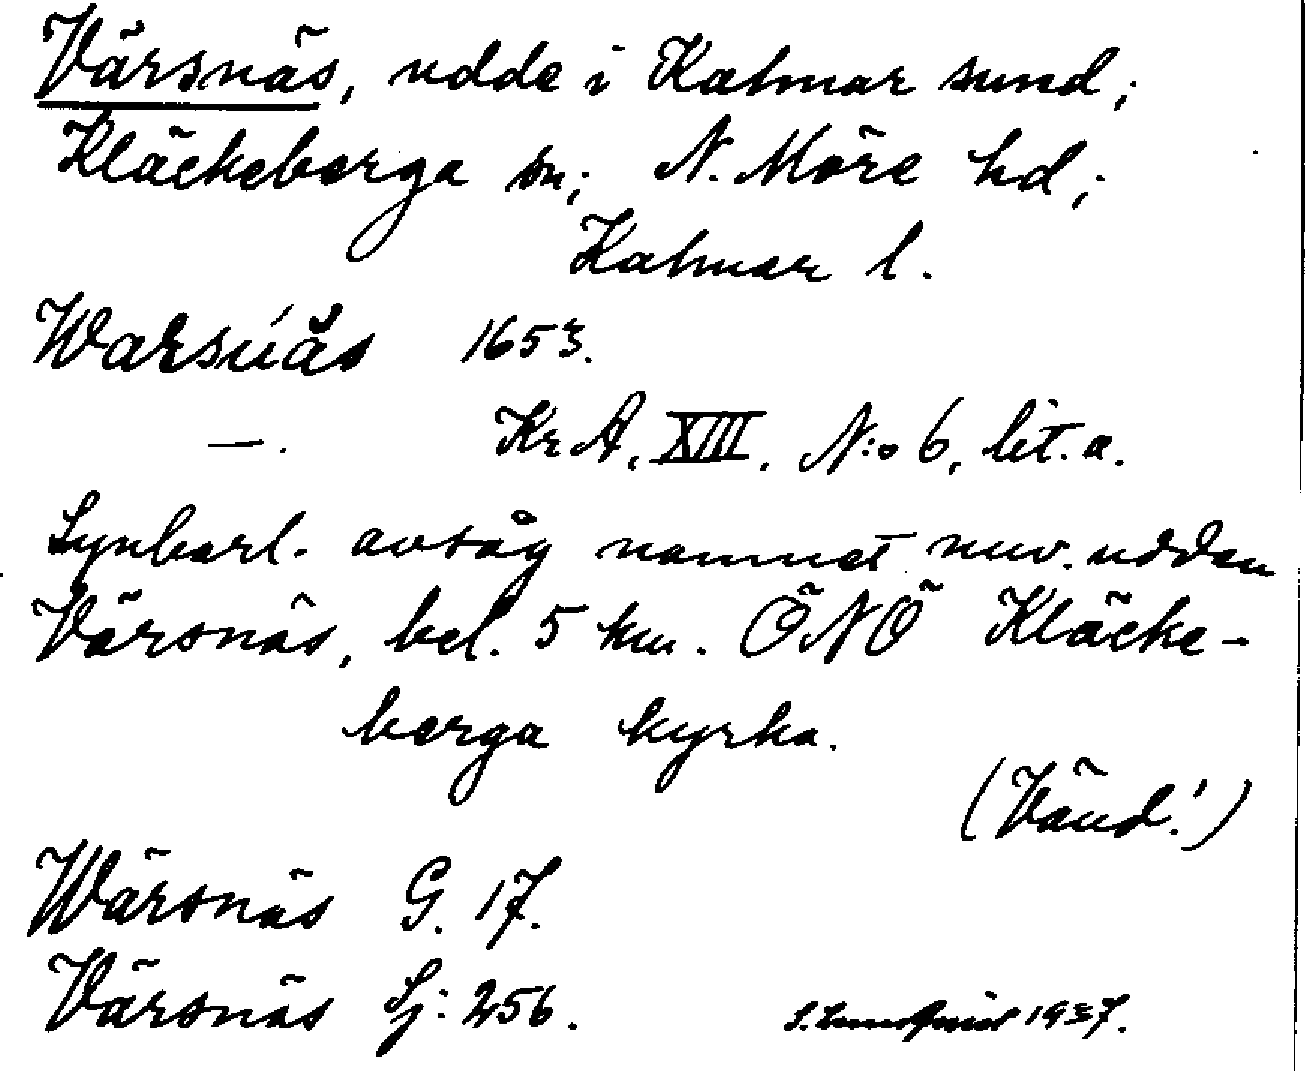 Värsnäs, udde i Kalmar sund;
Kläckeberga sn; N. Möre hd;
Kalmar l.
Warsnäs 1653.
—. KrA, XIII, N:o 6, lit. a.
Synbarl. avsåg namnet nuv. udden
Värsnäs, bel. 5 km. ÖNÖ Kläcke-
berga kyrka.
(Vänd!)
Wärsnäs G. 17.
Värsnäs Sj: 256.
1937.